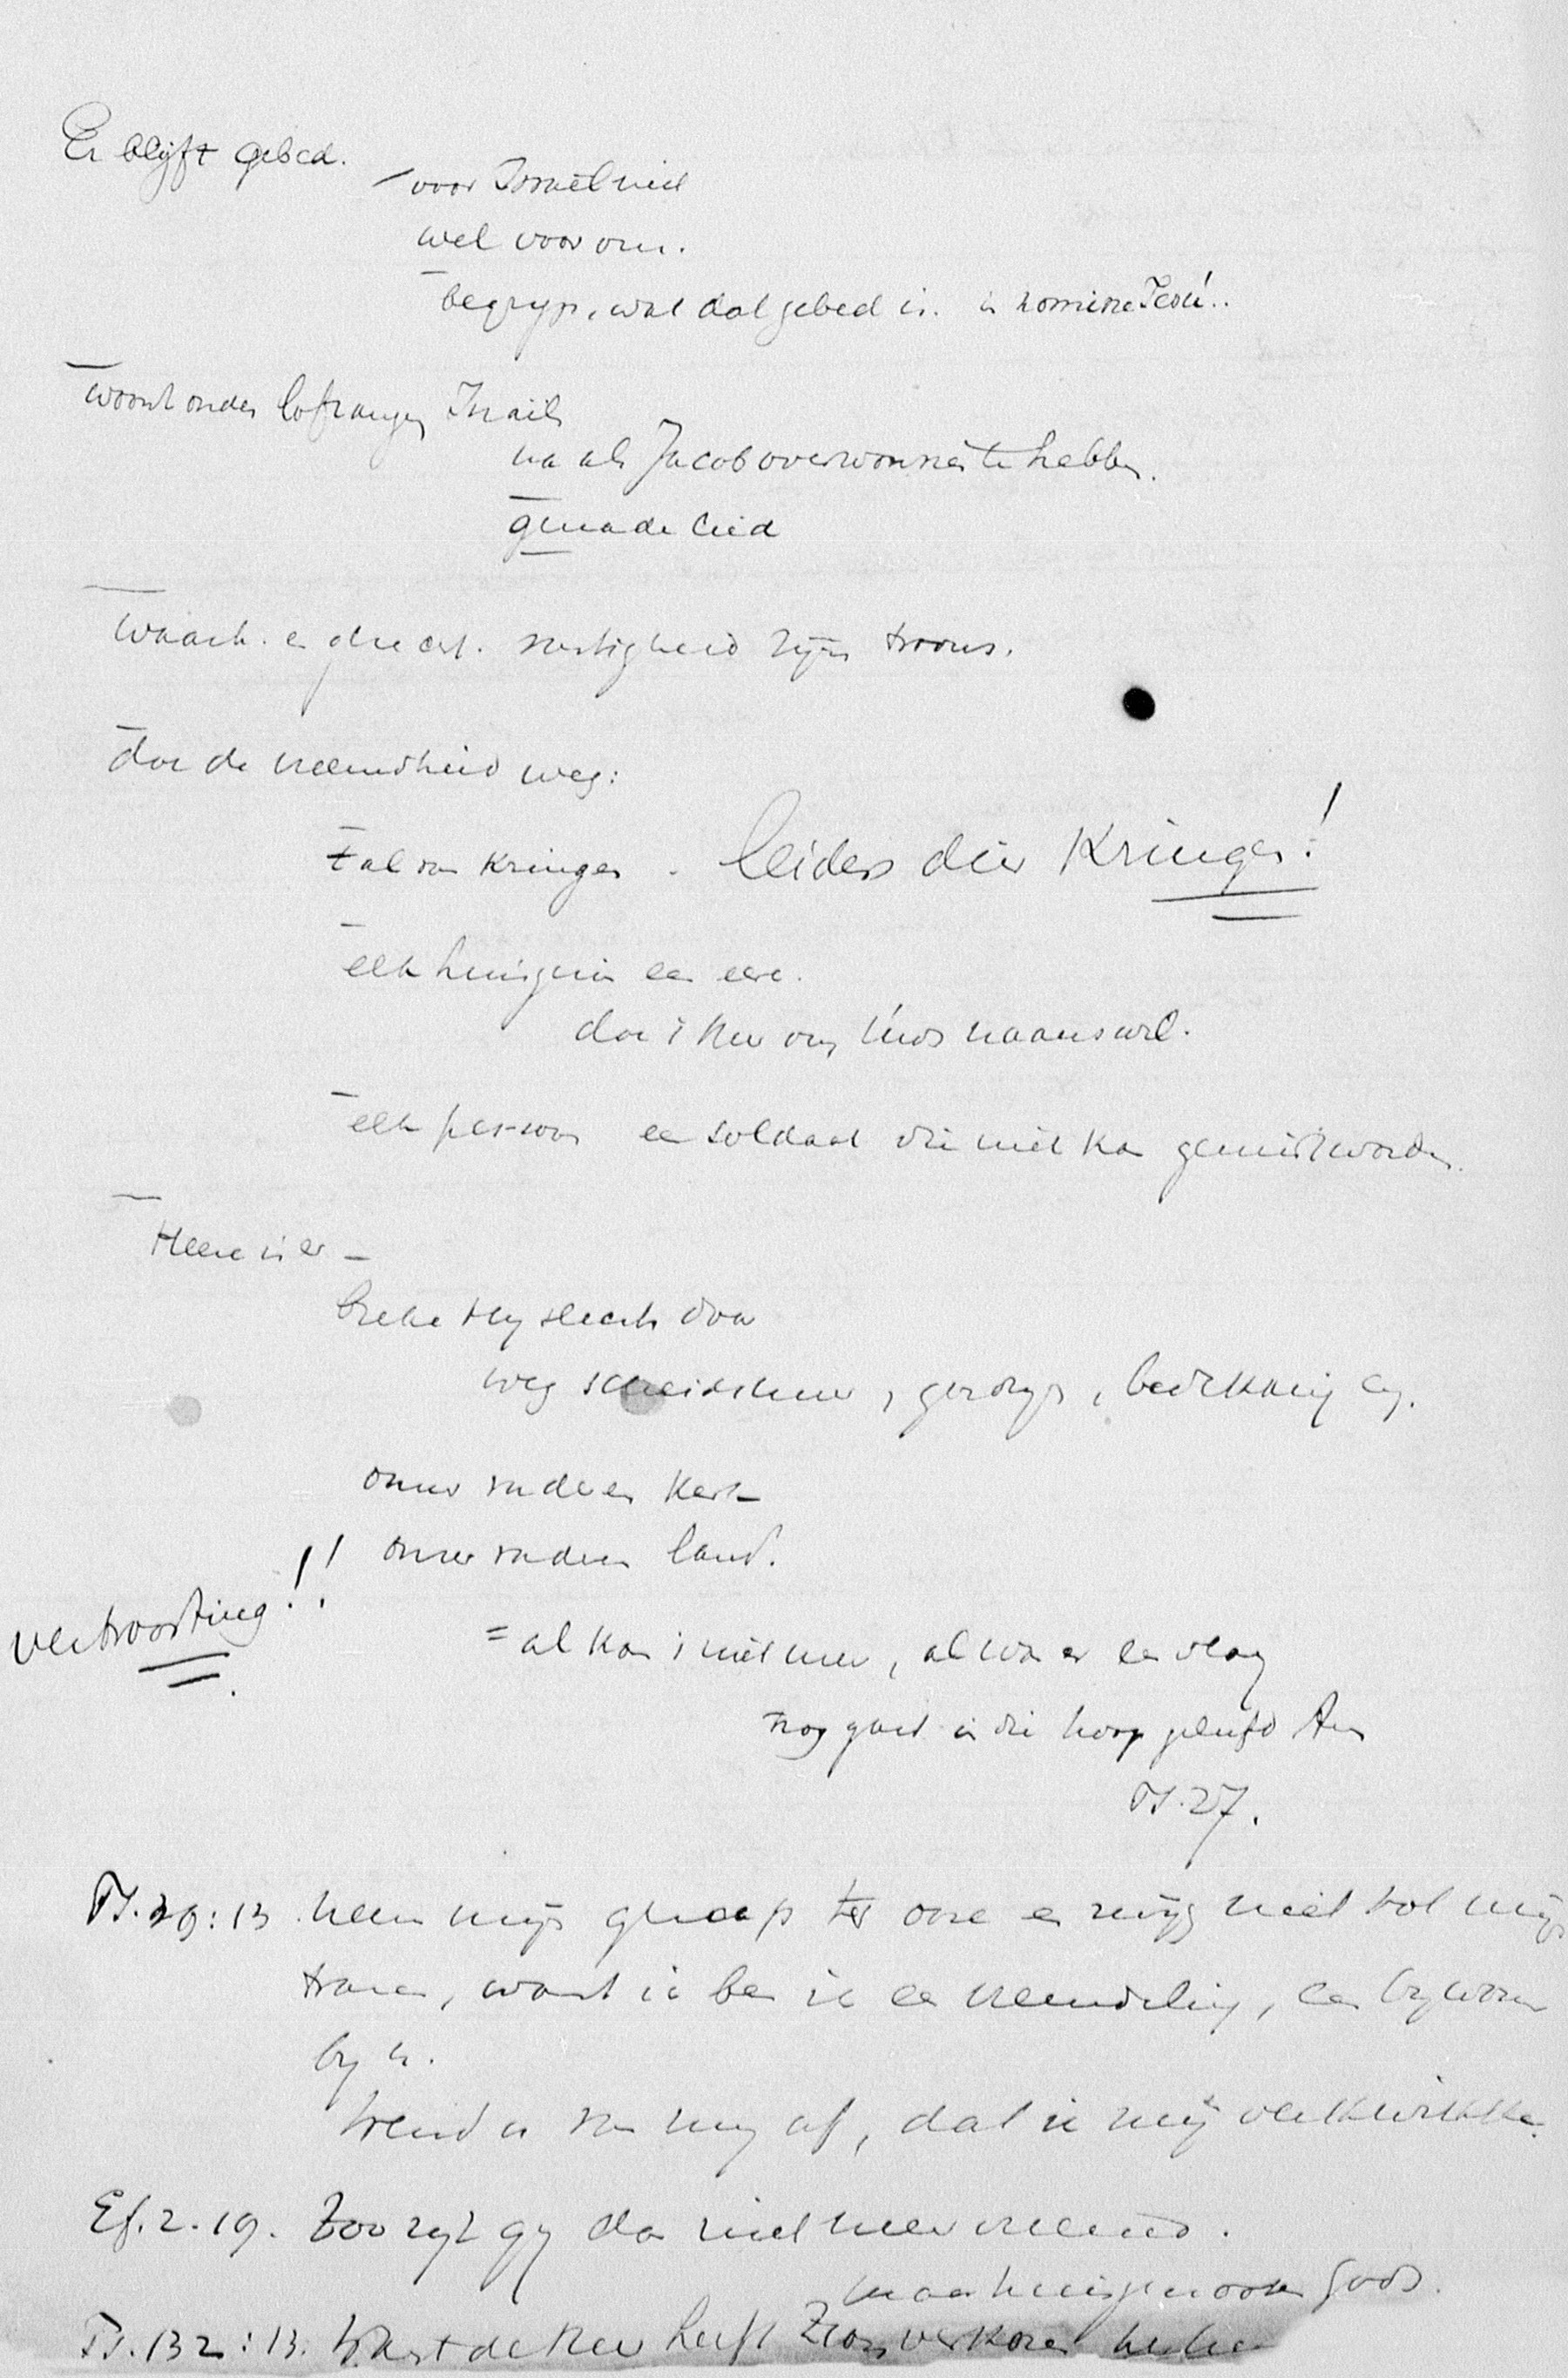 Er blijft gebed.
voor Israël niet
wel voor ons.
begrijp, wat dat gebed is. in nomine Jesu!..
woont onder lofzangen Israëls
na als Jacob overwonnen te hebben.
genade lied
waarh. en gerecht. vastigheid zijns troons.
doe de vreemdheid weg:
tal van kringen. leiders dier Kringen!
elk huisgezin een eere.
elk persoon een soldaat die niet kan gemist worden.
Heere is er -
breke Hij slechts door
weg scheidsmuur, gordijn, bedekking
onzer vaderen Kerk
onzer vaderen land.
vertroosting!!
= al kan i niet meer, al was er een vlag
nog gaat in die hoop
Ps. 27.
Ps. 39:13 neem mijn geroep ter oore en zwijg niet tot mijn
tranen, want ik ben een vreemdeling, een bijwoner
bij U.
Wend U van mij af, dat ik mij verkwikke.
Ef. 2.19. Zoo zijt gij dan niet meer vreemd.
maar huisgenooten Gods.
Ps. 132:13. Want de Heer heeft Zion verkoren